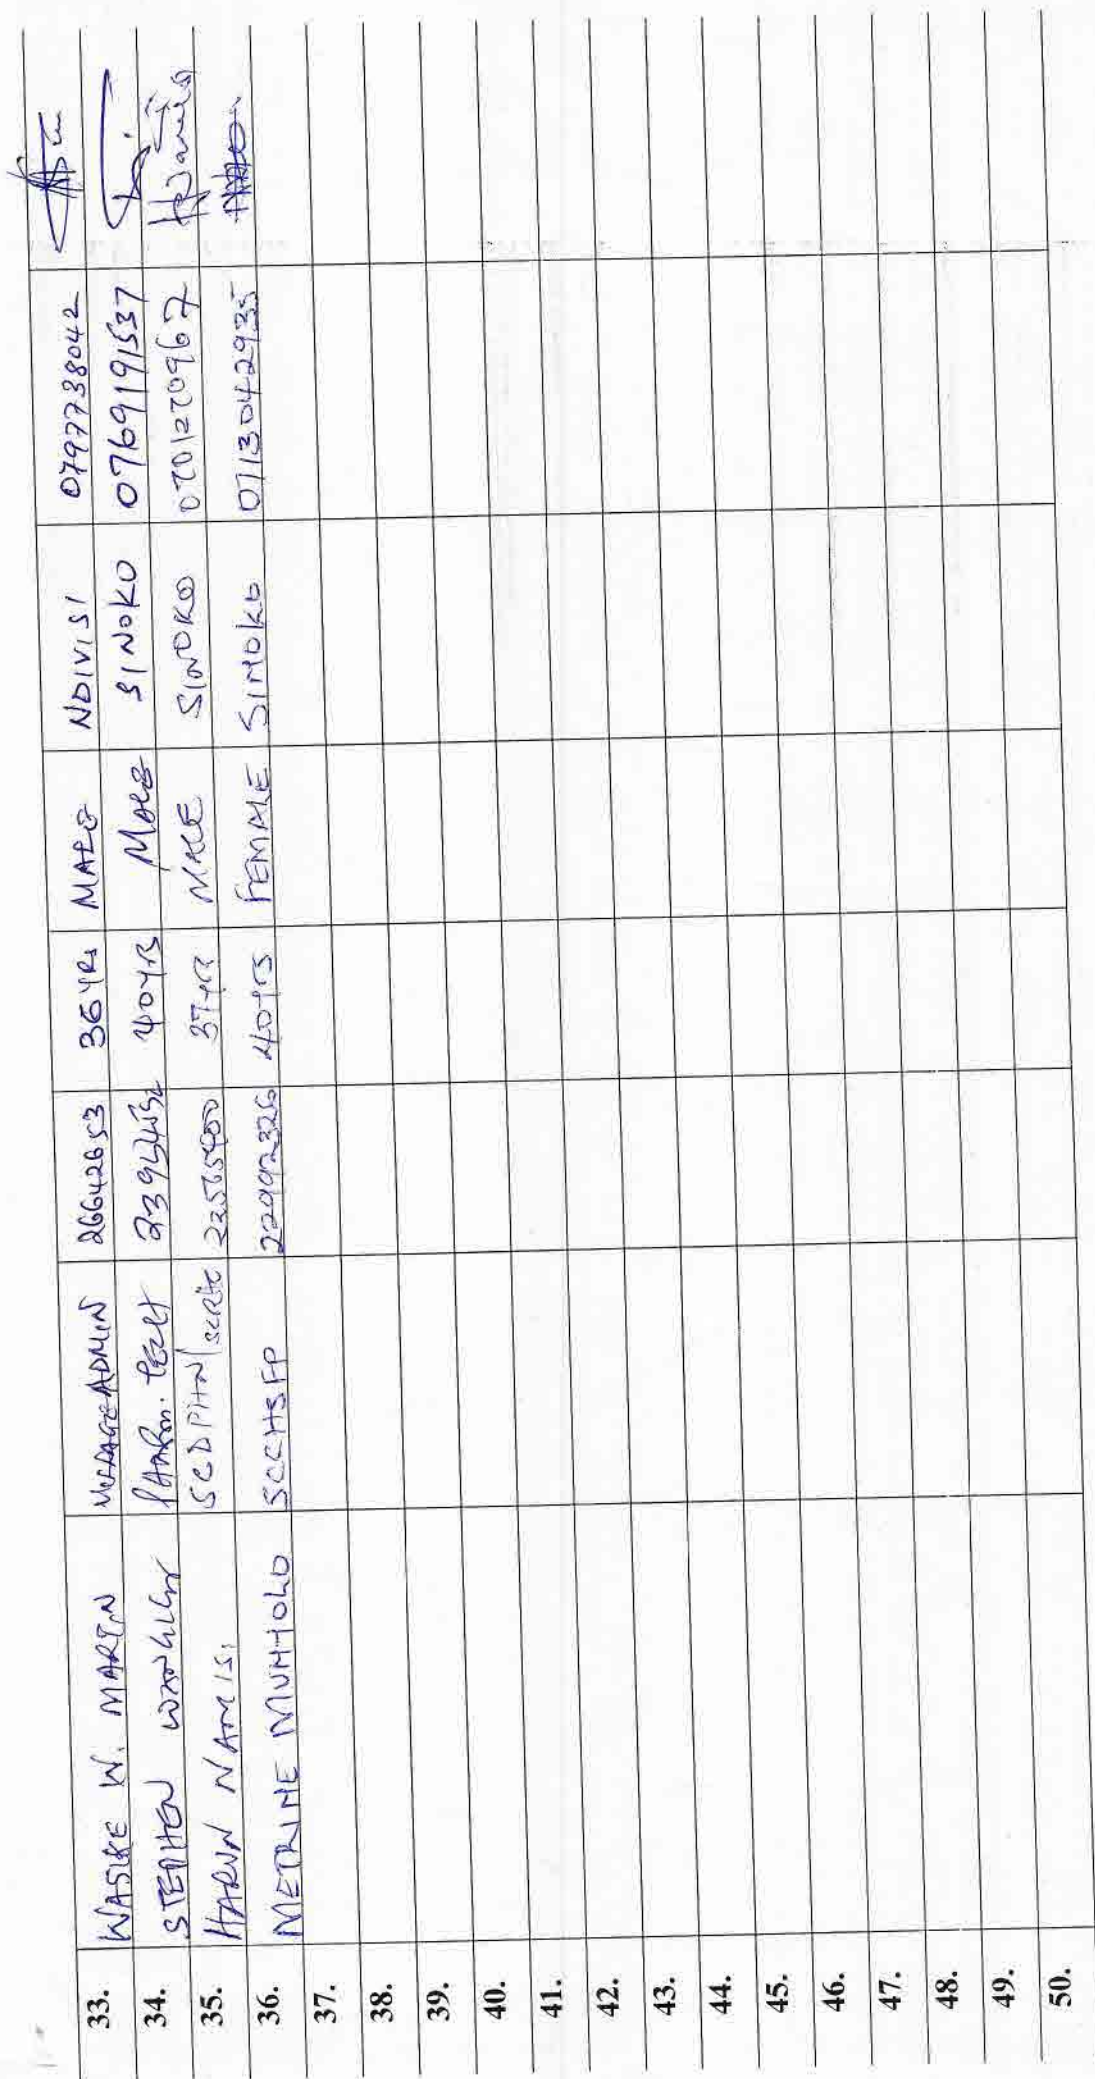 33. WASIKE W. MARTIN ADMIN 26642653 36 YRS MALE NDIVISI 0797738042
34. STEPHEN PHARM. TECH 40 YRS MALE SINOKO 0769191537
35. HARUN NAMISI SCDPHN 37 YR MALE SINOKO
36. METRINE MUHOLO SCCHSFP 22992326 40 YRS FEMALE SINOKO 0713042935
37.
38.
39.
40.
41.
42.
43.
44.
45.
46.
47.
48.
49.
50.